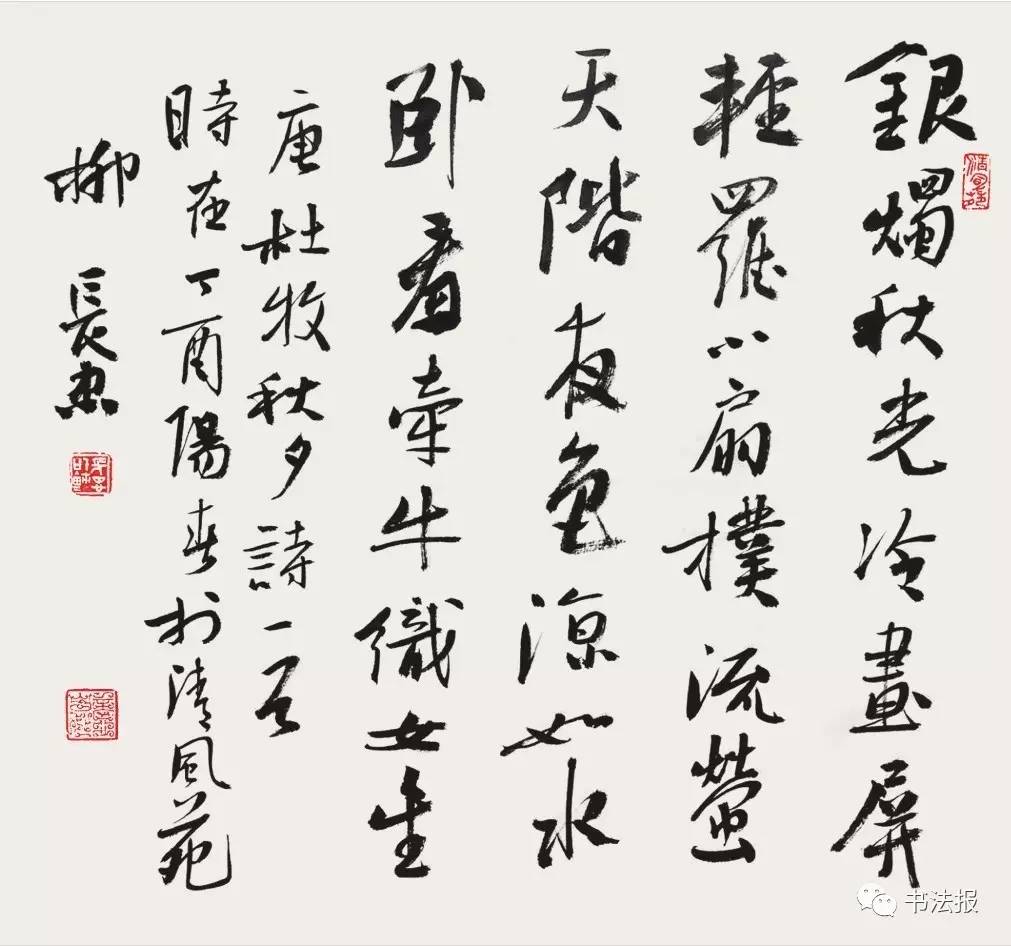 銀燭秋光冷畫屏
輕羅小扇撲流螢
天階夜色涼如水
卧看牽牛織女星
唐杜牧秋夕詩一首
時在丁酉陽春於清風苑
柳長忠
书法报